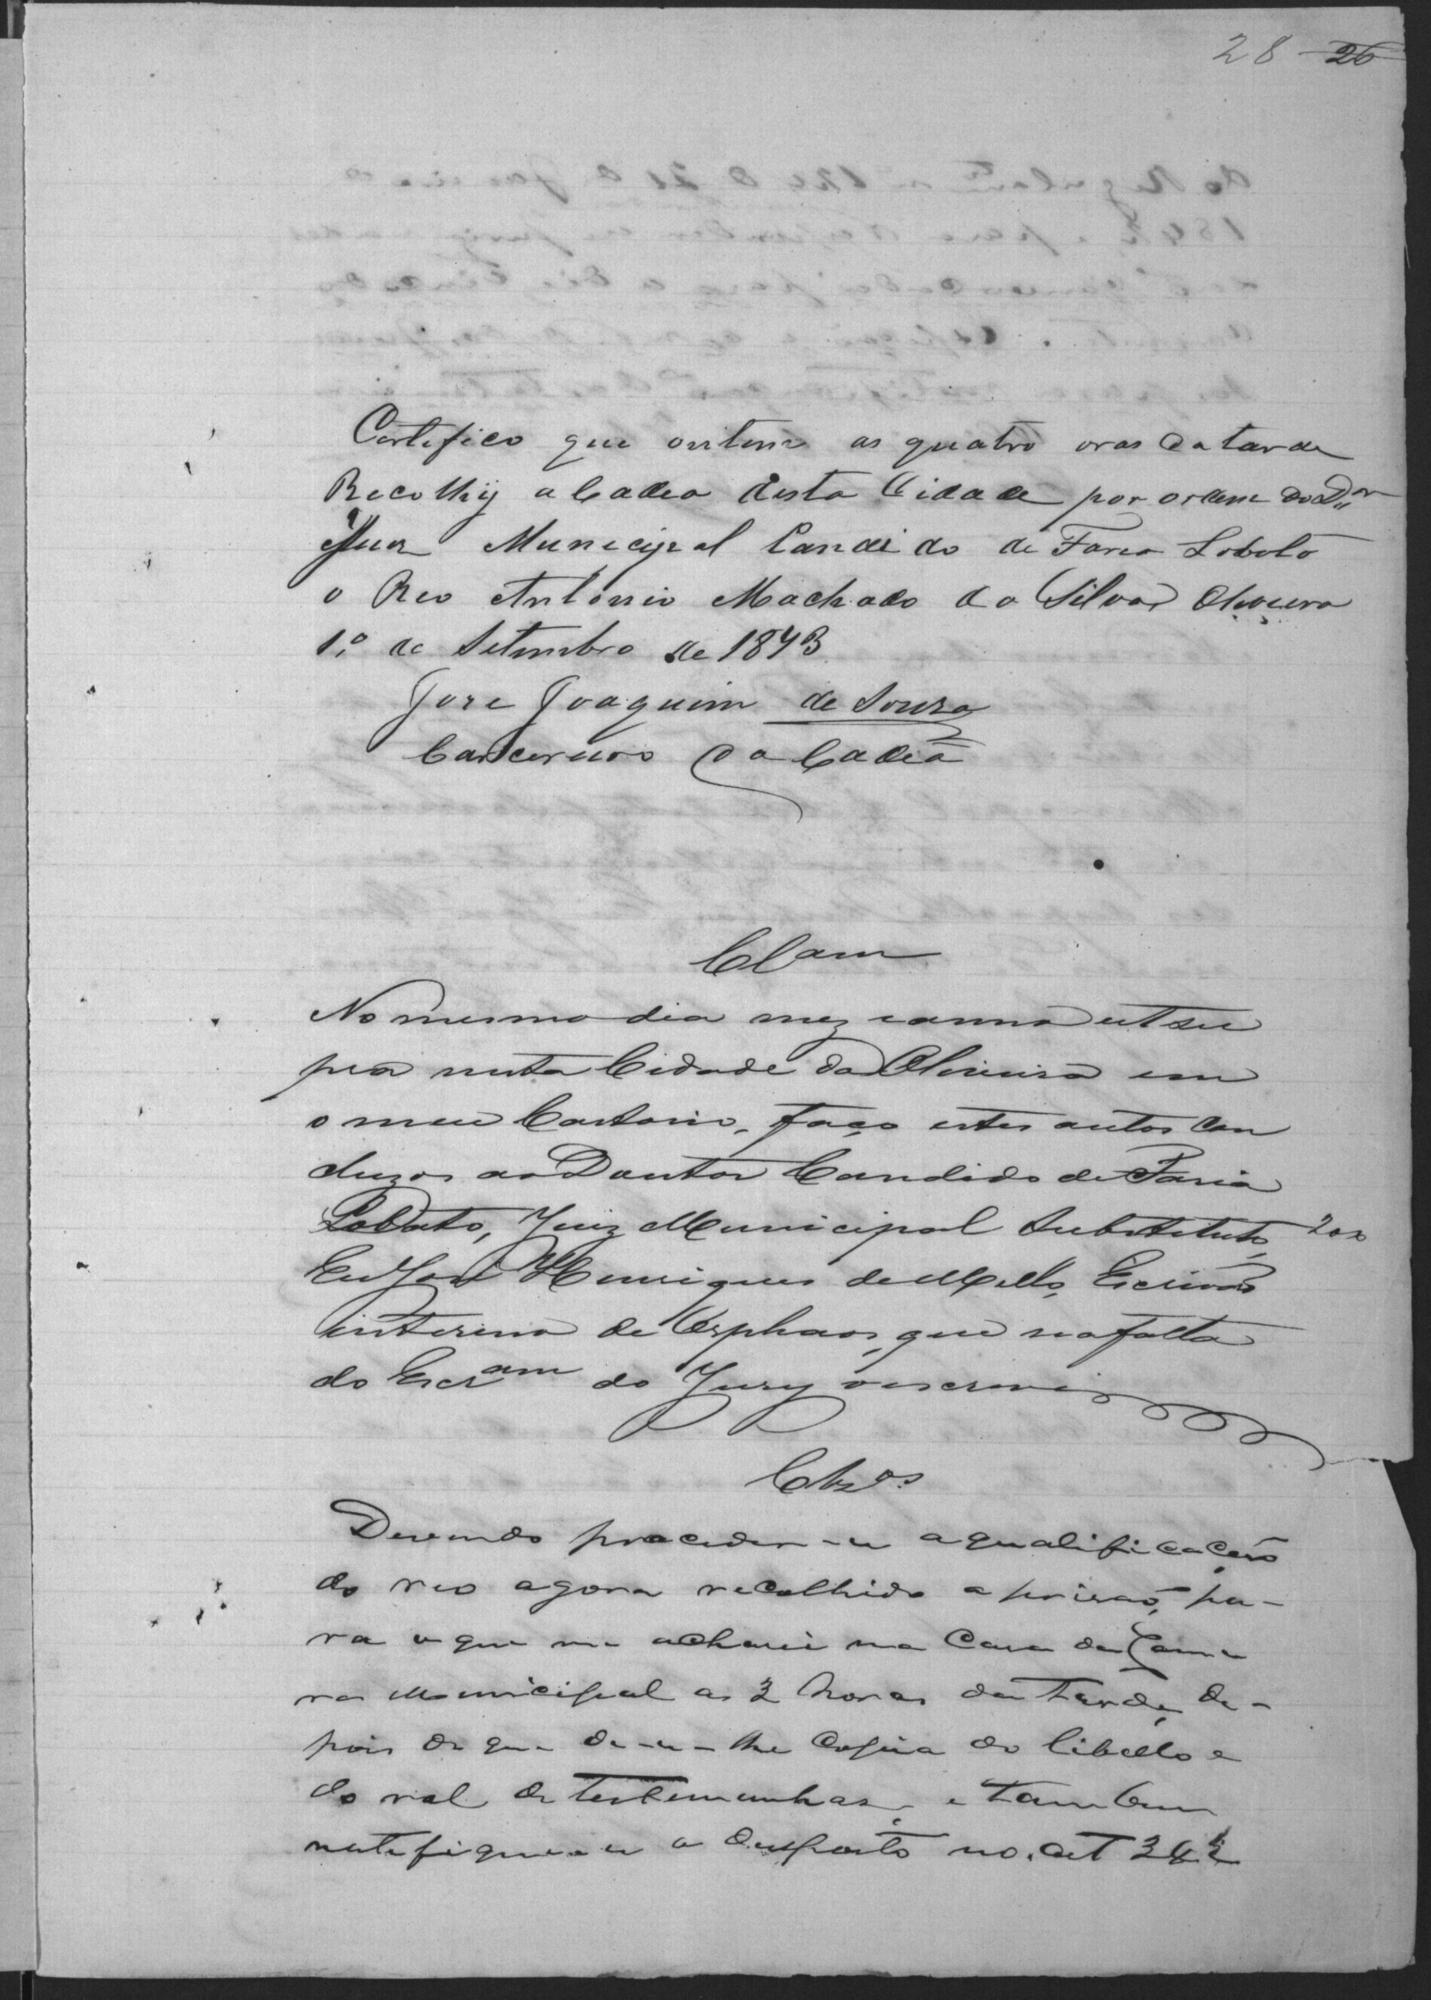 28 26
Certefico que ontem as quatro oras da tarde
Recolhij a Cadea desta Cidade por ordem do Dor
Juiz Municipal Candido de Faria Lobato
o Reo Antonio Machado da Silva Oliveira
1.º de Setembro de 1873
Jose Joaquim de Souza
Carcereiro da Cadea
Clam
No mesmo dia mez e anno ut su
pra nesta Cidade da Oliveira em
o meu Cartorio, faço estes autos con
cluzos ao Doutor Candido de Faria
Lobato, Juiz Municipal Substituto, 200
Eu José Henriques de Mello, Escrivão
interino de Orphaos, que na falta
do Escram do Jury o escrevi
Clzos
Devendo proceder-se a qualificação
do reo agora recolhido a prisão, pa-
ra o que me acharei na Casa da Cama
ra Municipal as 3 horas da tarde, de-
pois de que de-se-lhe copia do libello e
do rol de testemunhas, e tambem
notifique-se o desposto no art 342